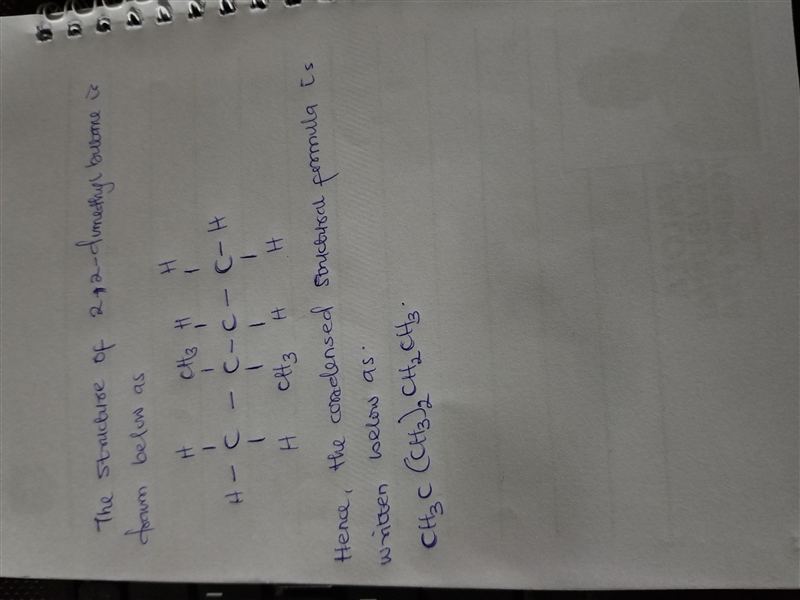 The structure of 2,2-dimethyl butane is
drawn below as
H CH3 H H
H - C - C - C - C - H
H CH3 H H
Hence, the condensed structural formula is
written below as.
CH3C(CH3)2CH2CH3.